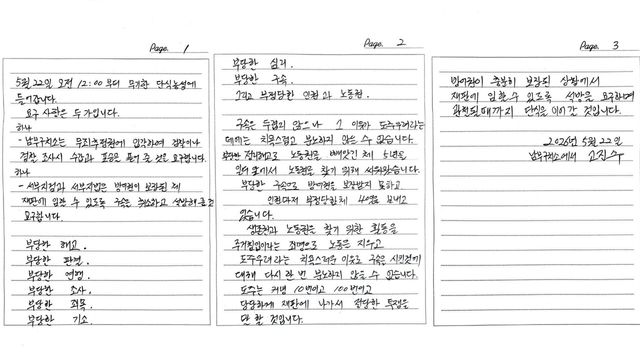 Page. 1
5월 22일 오전 12:00 부터 무기한 단식농성에
들어갑니다.
요구 사항은 두가지입니다.
하나
- 남부구치소는 무죄추정원칙에 입각하여 검찰이나
경찰 조사시 수갑과 포승은 풀어 줄 것을 요구합니다.
하나
- 서부지검과 서부지법은 방어권이 보장된 채
재판에 임할 수 있도록 구속 취소하고 석방하여 줄 것
요구합니다.
부당한 해고.
부당한 판결.
부당한 연행.
부당한 조사.
부당한 죄목.
부당한 기소.
Page. 2
부당한 심리.
부당한 구속.
그리고 부정당한 인권과 노동권.
구속은 두렵지 않으나 그 이유가 도주우려라는
데에는 치욕스럽고 분노하지 않을 수 없습니다.
부당한 정리해고로 노동권을 빼앗긴 채 5년을
일터 밖에서 노동권을 찾기 위해 싸워왔습니다.
부당한 구속으로 방어권을 보장받지 못하고
인권마저 부정당한채 40일을 보내고
있습니다.
생존권과 노동권을 찾기 위한 활동을
주거침입이라는 죄명으로 노동을 지우고
도주우려라는 치욕스러운 이유로 구속을 시킨것에
대해 다시 한 번 분노하지 않을 수 없습니다.
도주는 커녕 10번이고 100번이고
당당하게 재판에 나가서 정당한 투쟁을
할 것입니다.
Page. 3
방어권이 충분히 보장된 상황에서
재판에 임할 수 있도록 석방을 요구하며
관철될때까지 단식을 이어 갈 것입니다.
2026년 5월 22일
남부구치소에서 고진수